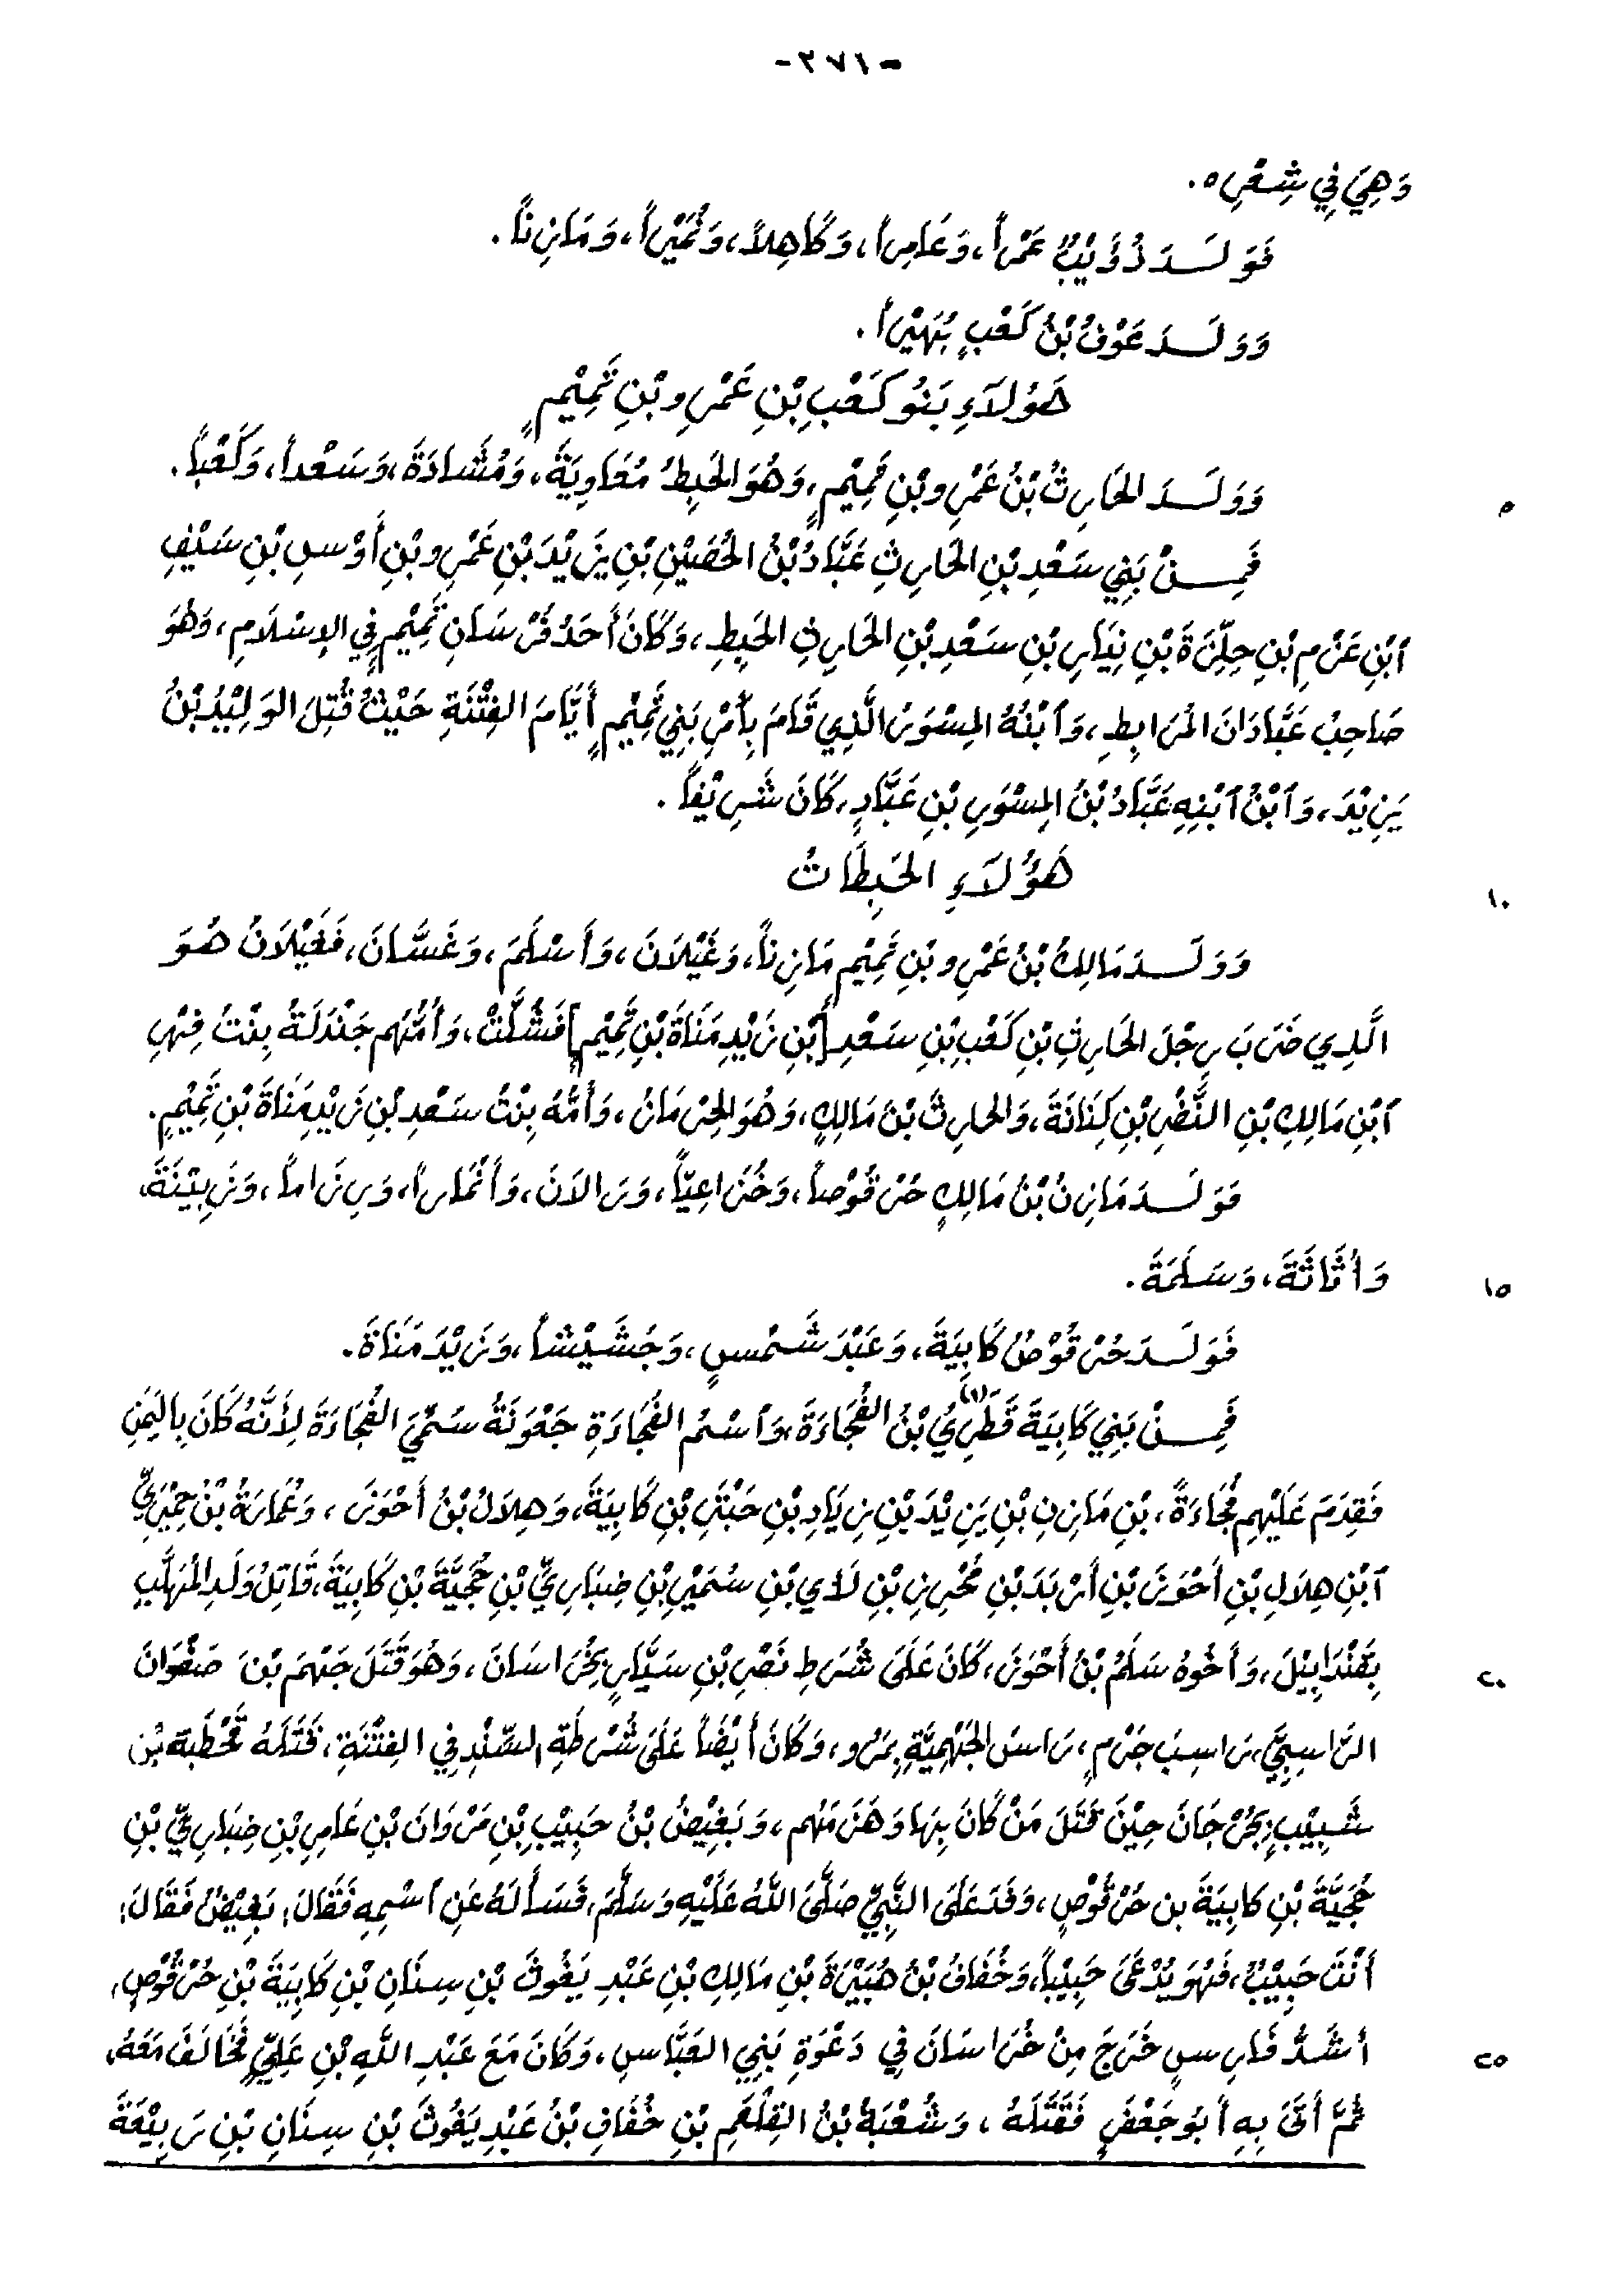 -٢٧١-
وَهِيَ فِي شِعْرِهِ.
فَوَلَدَ ذُؤَيْبٌ عَمْراً، وَعَامِراً، وَكَاهِلاً، وَنُمَيْراً، وَمَازِناً.
وَوَلَدَ عَوْفُ بْنُ كَعْبٍ بُهَيْراً.
هَؤُلاَءِ بَنُو كَعْبِ بْنِ عَمْرِو بْنِ تَمِيْمٍ
وَوَلَدَ الحَارِثُ بْنُ عَمْرِو بْنِ تَمِيْمٍ، وَهُوَ الحَبِطُ مُعَاوِيَةَ، وَمُشَادَةَ، وَسَعْداً، وَكَعْباً.
٥
فَمِنْ بَنِي سَعْدِ بْنِ الحَارِثِ عَبَّادُ بْنُ الحُصَيْنِ بْنِ يَزِيْدَ بْنِ عَمْرِو بْنِ أَوْسِ بْنِ سَيْفِ
ٱبْنِ عَزْمِ بْنِ حِلِّزَةَ بْنِ نِيَارِ بْنِ سَعْدِ بْنِ الحَارِثِ الحَبِطِ، وَكَانَ أَحَدُ فُرْسَانِ تَمِيْمٍ فِي الإِسْلاَمِ، وَهُوَ
صَاحِبُ عَبَّادَانَ المُرَابِطِ، وَٱبْنُهُ المِسْوَرُ الَّذِي قَامَ بِأَمْرِ بَنِي تَمِيْمٍ أَيَّامَ الفِتْنَةِ حَيْثُ قُتِلَ الوَلِيْدُ بْنُ
يَزِيْدَ، وَٱبْنُ ٱبْنِهِ عَبَّادُ بْنُ المِسْوَرِ بْنِ عَبَّادٍ، كَانَ شَرِيْفاً.
هَؤُلاَءِ الحَبِطَاتُ
١٠
وَوَلَدَ مَالِكُ بْنُ عَمْرِو بْنِ تَمِيْمٍ مَازِناً، وَغَيْلاَنَ، وَأَسْلَمَ، وَغَسَّانَ، فَغَيْلاَنُ هُوَ
الَّذِي ضَرَبَ رِجْلَ الحَارِثِ بْنِ كَعْبِ بْنِ سَعْدِ [بْنِ زَيْدِ مَنَاةَ بْنِ تَمِيْمٍ] فَشُلَّتْ، وَأُمُّهُم جَنْدَلَةُ بِنْتُ فِهْرِ
ٱبْنِ مَالِكِ بْنِ النَّضْرِ بْنِ كِنَانَةَ، وَالحَارِثَ بْنَ مَالِكٍ، وَهُوَ الحِرْمَازُ، وَأُمُّهُ بِنْتُ سَعْدِ بْنِ زَيْدِ مَنَاةَ بْنِ تَمِيْمٍ.
فَوَلَدَ مَازِنُ بْنُ مَالِكٍ حُرْقُوْصاً، وَخُزَاعِيّاً، وَرَالاَنَ، وَأَنْمَاراً، وَرِزَاماً، وَزَبِيْنَةَ،
وَأُثَاثَةَ، وَسَلَمَةَ.
١٥
فَوَلَدَ حُرْقُوْصُ كَابِيَةَ، وَعَبْدَ شَمْسٍ، وَجُشَيْشاً، وَزَيْدَ مَنَاةَ.
فَمِنْ بَنِي كَابِيَةَ قَطَرِيُّ(١) بْنُ الفُجَاءَةَ، وَٱسْمُ الفُجَاءَةِ جَعْوَنَةُ سُمِّيَ الفُجَاءَةَ لِأَنَّهُ كَانَ بِاليَمَنِ
فَقَدِمَ عَلَيْهِم فُجَاءَةً، بْنِ مَازِنِ بْنِ يَزِيْدَ بْنِ زِيَادِ بْنِ حَبْتَرِ بْنِ كَابِيَةَ، وَهِلاَلُ بْنُ أَحْوَزَ، وَعُمَارَةُ بْنُ حِمْيَرِيِّ
ٱبْنِ هِلاَلِ بْنِ أَحْوَزَ بْنِ أَرْبَدَ بْنِ مُحْرِزِ بْنِ لَأْيِ بْنِ سُمَيْرِ بْنِ ضِبَارِيِّ بْنِ حُجَيَّةَ بْنِ كَابِيَةَ، قَاتِلُ وَلَدِ المُهَلَّبِ
بِقَنْدَابِيْلَ، وَأَخُوهُ سَلْمُ بْنُ أَحْوَزَ، كَانَ عَلَى شُرَطِ نَصْرِ بْنِ سَيَّارٍ بِخُرَاسَانَ، وَهُوَ قَتَلَ جَهْمَ بْنَ صَفْوَانَ
٢٠
الرَّاسِبِيَّ، رَاسِبَ جَرْمٍ، رَاسَ الجَهْمِيَّةِ بِمَرْو، وَكَانَ أَيْضاً عَلَى شُرْطَةِ السِّنْدِ فِي الفِتْنَةِ، فَقَتَلَهُ قَحْطَبَةُ بْنُ
شَبِيْبٍ بِجُرْجَانَ حِيْنَ قَتَلَ مَنْ كَانَ بِهَا وَهَزَمَهُم، وَبَغِيْضُ بْنُ حَبِيْبِ بْنِ مَرْوَانَ بْنِ عَامِرِ بْنِ ضِبَارِيِّ بْنِ
حُجَيَّةَ بْنِ كَابِيَةَ بن حُرْقُوْصٍ، وَفَدَ عَلَى النَّبِيِّ صَلَّى اللَّهُ عَلَيْهِ وَسَلَّمَ، فَسَأَلَهُ عَنِ ٱسْمِهِ فَقَالَ: بَغِيْضٌ فَقَالَ:
أَنْتَ حَبِيْبٌ، فَهُوَ يُدْعَى حَبِيْباً، وَخُفَافُ بْنُ هُبَيْرَةَ بْنِ مَالِكِ بْنِ عَبْدِ يَغُوثَ بْنِ سِنَانِ بْنِ كَابِيَةَ بْنِ حُرْقُوْصٍ،
أَشَدُّ فَارِسٍ خَرَجَ مِنْ خُرَاسَانَ فِي دَعْوَةِ بَنِي العَبَّاسِ، وَكَانَ مَعَ عَبْدِ اللَّهِ بْنِ عَلِيٍّ فَخَالَفَ مَعَهُ،
٢٥
ثُمَّ أَتَى بِهِ أَبُو جَعْفَرٍ فَقَتَلَهُ، وَشُعْبَةُ بْنُ القِلْعَمِ بْنِ خُفَافِ بْنُ عَبْدِ يَغُوثَ بْنِ سِنَانِ بْنِ رَبِيْعَةَ